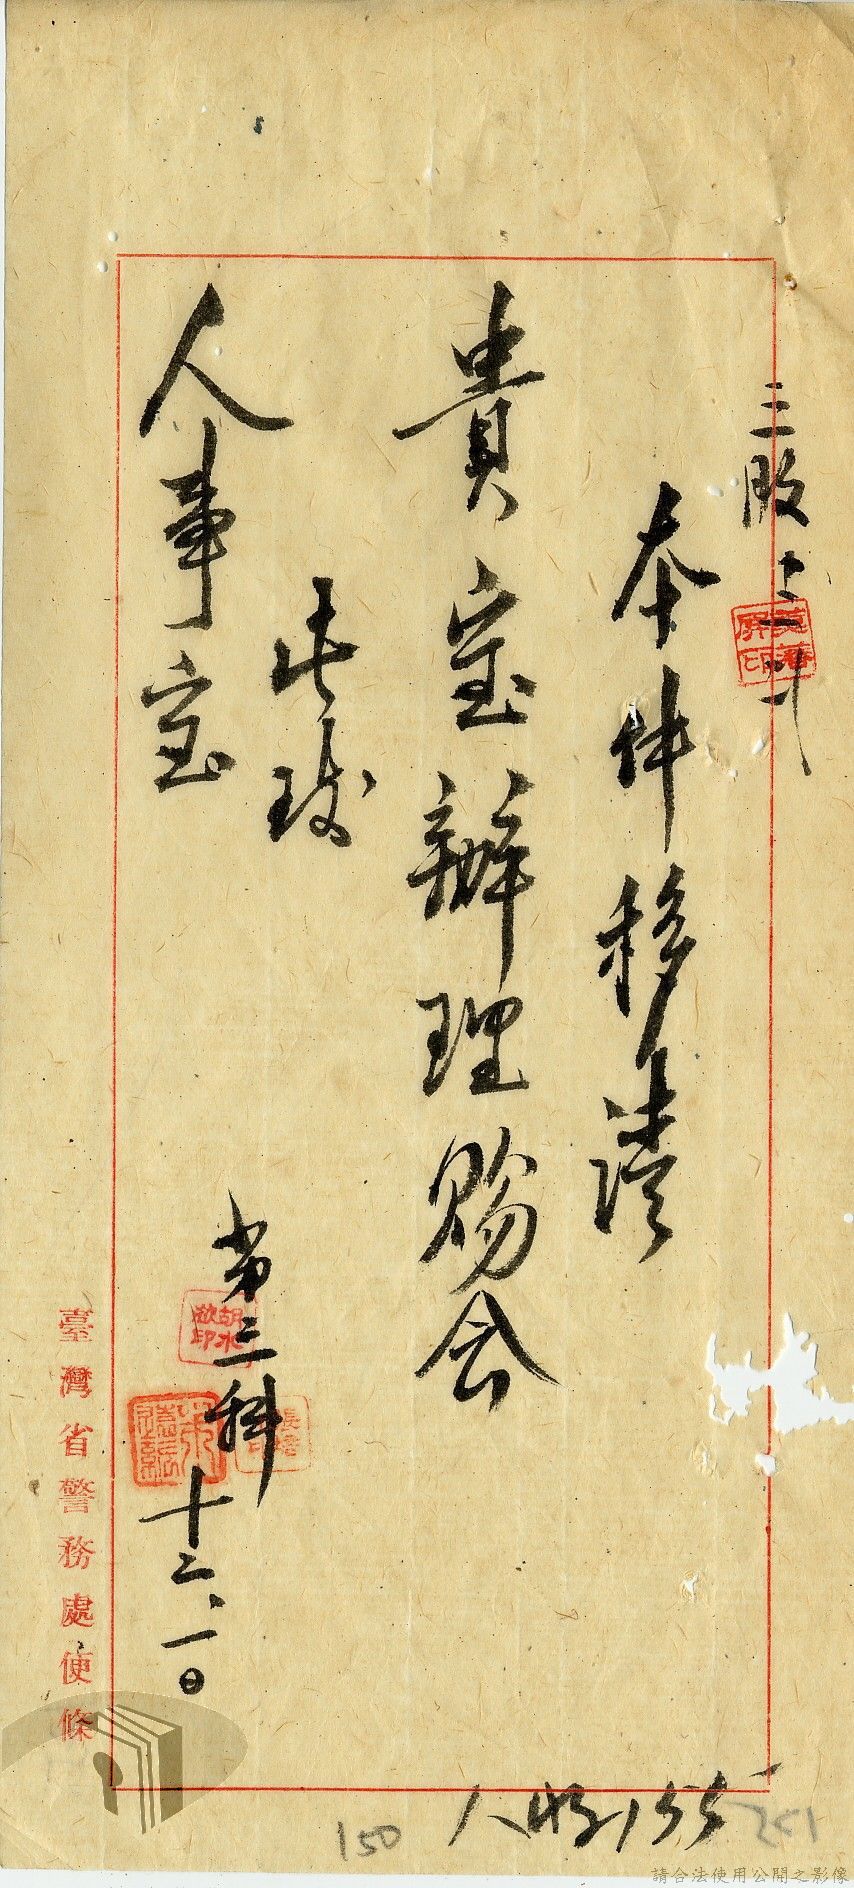 三股 十二
本件移請
貴室辦理賜会
此致
人事室
第三科
十二、一日
臺灣省警務處便條
人收155
150
251
請合法使用公開之影像